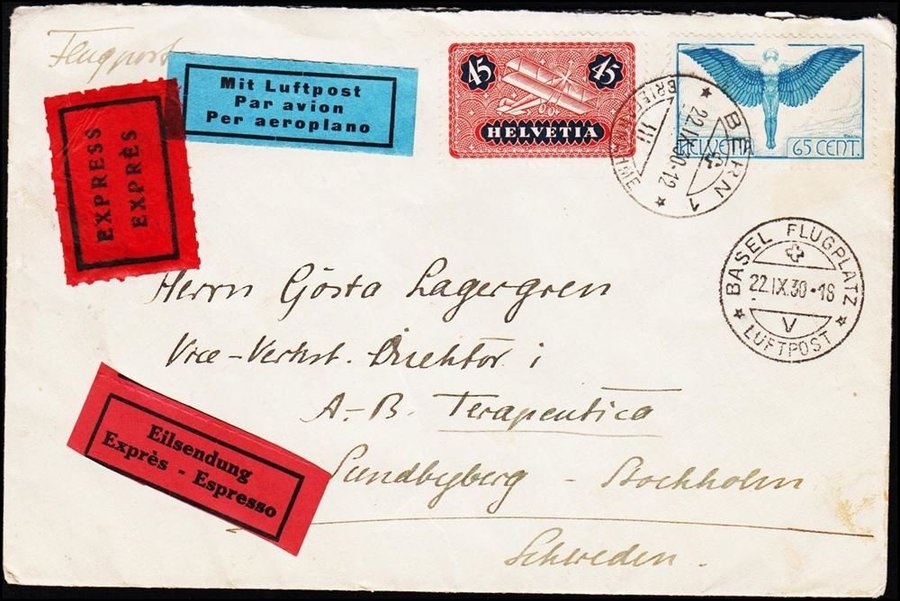 Flugpost
Mit Luftpost
Par avion
Per aeroplano
EXPRESS
EXPRÈS
45 45
HELVETIA
HELVETIA 65 CENT.
BERN 1
22.IX.30-12
III
BRIEFANNAHME
BASEL FLUGPLATZ
22.IX.30-18
V
LUFTPOST
Herrn Gösta Lagergren
Vice-Verkst. Direktör i
A.-B. Terapeutica
Sundbyberg - Stockholm
Schweden.
Eilsendung
Exprès - Espresso